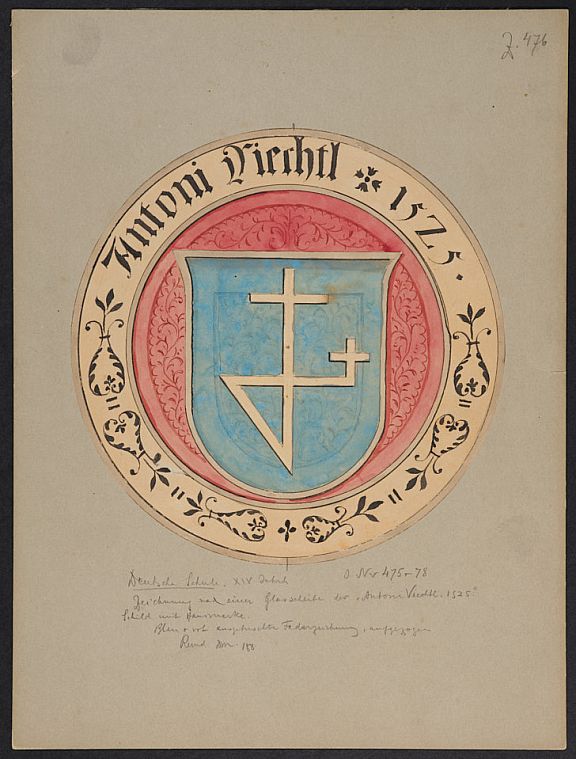 Z. 476
Antoni Viechtl 1525.
Deutsche Schule. XIX Jahrh
Zeichnung nach einer Glasscheibe der "Antoni Viechtl. 1525."
Schild mit Hausmarke.
Blau u rot Federzeichnung, aufgezogen
Rund